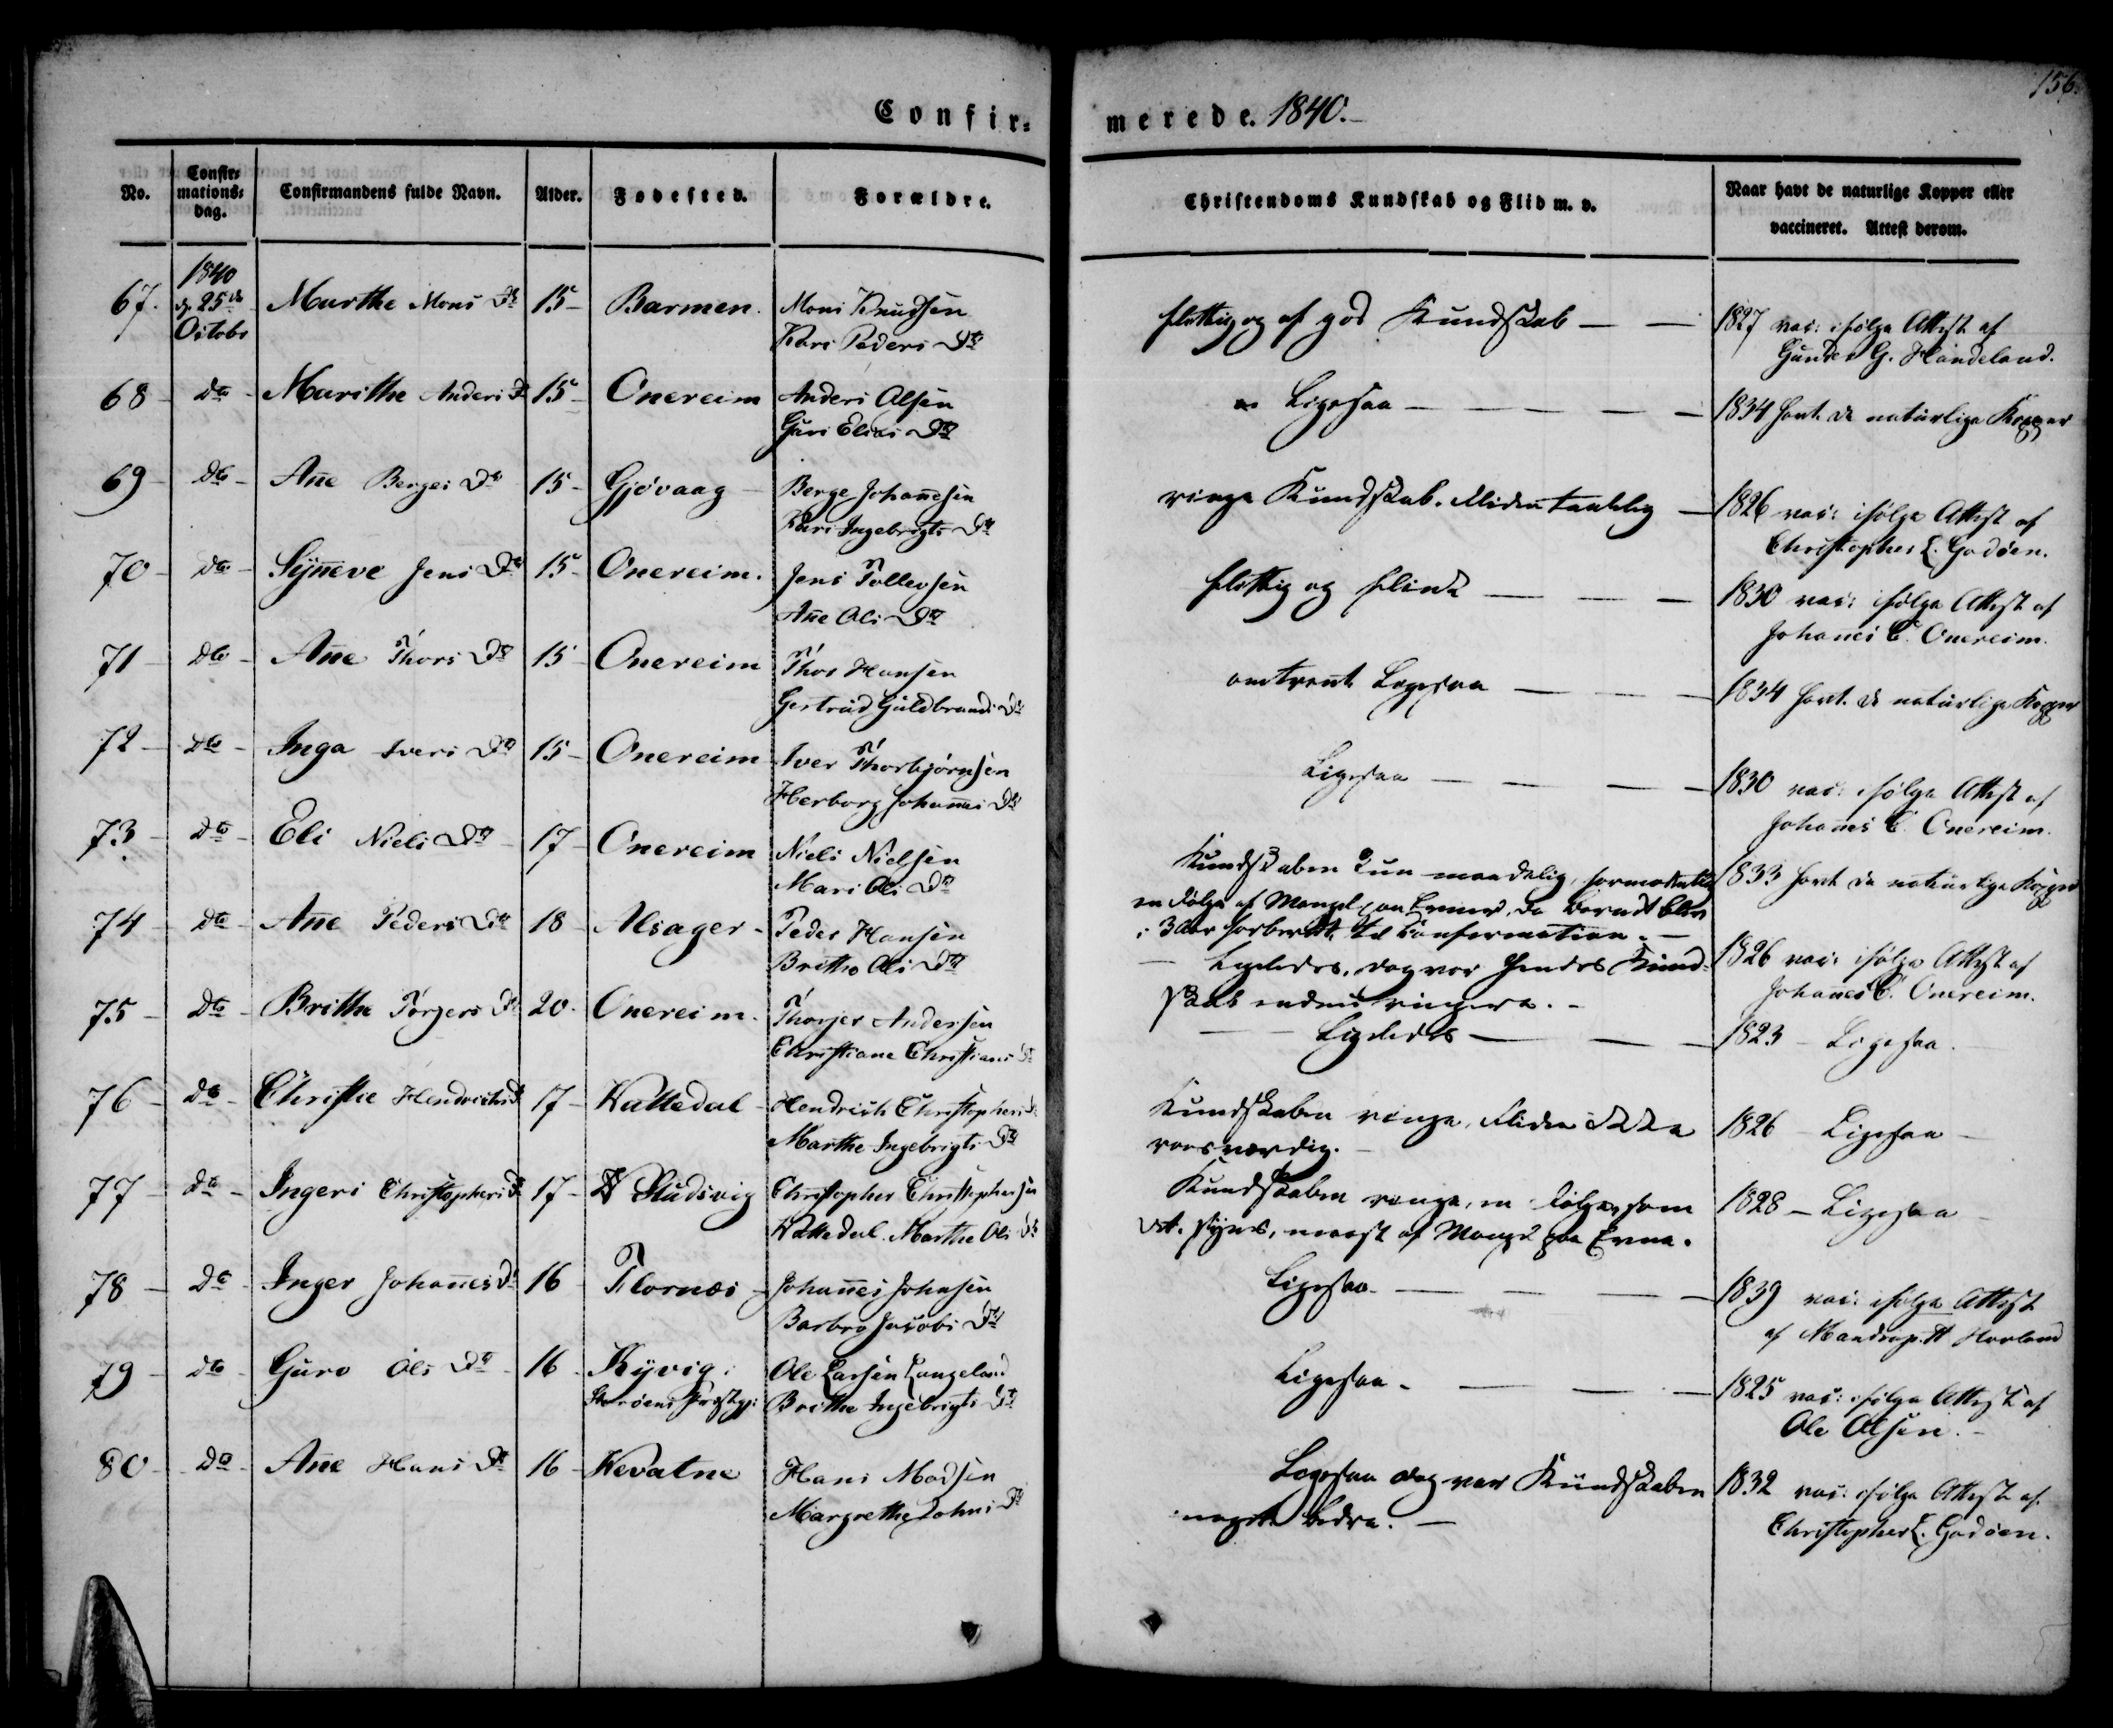 156.
Confir=
merede. 1840.
No.
Confir=
mations=
dag.
Confirmandens fulde Navn.
Alder.
Fødested.
Forældre.
Christendoms Kundskab og Flid m. v.
Naar havt de naturlige Kopper eller
vaccineret. Attest derom.
1840
67. d. 25de Marthe Mons Dr 15 - Barmen. Mons Knudsen
Octobr Kari Peders Dr
flittig og af god Kundskab — — 1827 vac: ifølge Attest af
Gunder G. Handeland.
68 - Do - Marithe Anders Dr 15 - Onereim Anders Olsen
Guri Elias Dr
Ligesaa — — — — 1834 havt de naturlige Kopper
69 - Do - Ane Berges Dr 15 - Gjøvaag - Berge Johannesen
Kari Ingebrigts Dr
ringe Kundskab. Fliden taalelig — 1826 vac: ifølge Attest af
Christopher L. Godøen.
70 - Do - Syneve Jens Dr 15 - Onereim. Jens Tollevsen
Ane Ols Dr
flittig og flink — — — 1830 vac: ifølge Attest af
Johanes C. Onereim.
71 - Do - Ane Thors Dr 15 - Onereim Thor Hansen
Gertrud Guldbrands Dr
omtrent Ligesaa — — — 1834 havt de naturlige Kopper
72 - Do - Inga Ivers Dr 15 - Onereim Iver Thorbjørnsen
Herborg Johannes Dr
Ligesaa — — — 1830 vac: ifølge Attest af
Johanes C. Onereim.
73 - Do - Eli Niels Dr - 17 - Onereim Niels Nielsen
Mari Ols Dr
Kundskaben kun maadelig, formodentlig 1833 havt de naturlige Kopper
en Følge af Mangel paa Evner, da blev
i 3 Aar forberedt til Confirmation. —
74 - Do - Ane Peders Dr 18 - Alsager - Peder Hansen
Britho Ols Dr
— Ligeledes, dog var hendes Kund- 1826 vac: ifølge Attest af
skab endnu ringere. - Johanes C. Onereim.
75 - Do - Brithe Torgers Dr 20 - Onereim. Thorger Andersen
Christiane Christians Dr
— — Ligeledes — — — 1823 - Ligesaa.
76 - Do - Christie Hendrichs Dr 17 - Wattedal - Hendrich Christophers
Marthe Ingebrigts Dr
Kundskaben ringe, Fliden ikke 1826 - Ligesaa -
roesværdig. -
77 - Do - Ingeri Christophers Dr 17 - Studsvig Christopher Christophersen
Wattedal. Marthe Ols Dr
Kundskaben ringe, en Følge, som 1828 - Ligesaa -
det synes, meest af Mangel paa Evne.
78 - Do - Inger Johanes Dr 16 - Flornæs - Johannes Johnsen
Barbro Jacobs Dr
Ligesaa - — — — 1839 vac: ifølge Attest
af Mandrup H Havland
79 - Do - Guro Ols Dr - 16 - Kyvig. Ole Larsen Langeland
Storøens Præstegj: Brithe Ingebrigts Dr
Ligesaa - — — — 1825 vac: ifølge Attest af
Ole Olsen. -
80 - Do - Ane Hans Dr 16 - Wevatne Hans Madsen
Margrethe Johns Dr
Ligesaa dog var Kundskaben 1832 vac: ifølge Attest af
noget bedre. — Christopher L. Godøen.